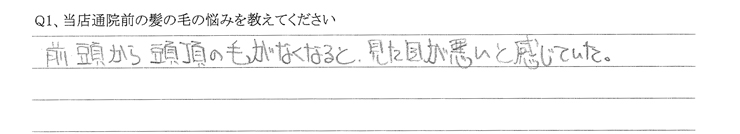 Q1、当店通院前の髪の毛の悩みを教えてください
前頭から頭頂の毛がなくなると、見た目が悪いと感じていた。